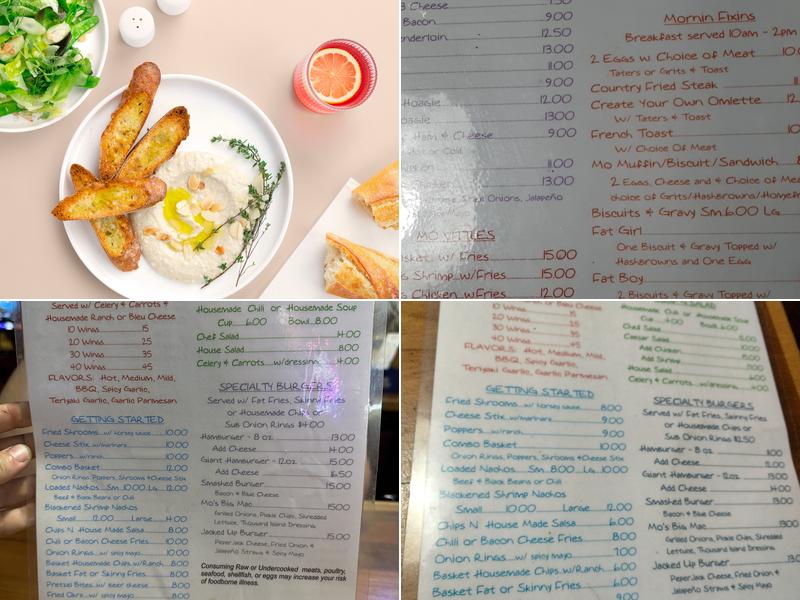 9.00
Bacon 9.00
12.50
13.00
11.00
9.00
Hoagie 12.00
Hoagie 13.00
Ham & Cheese 9.00
11.00
13.00
Onions, Jalapeño
MO VITTLES
w/ Fries 15.00
Shrimp w/Fries 15.00
Chicken w/Fries 12.00
Mornin Fixins
Breakfast served 10am - 2pm
2 Eggs w Choice of Meat
Taters or Grits & Toast
Country Fried Steak
Create Your Own Omlette
W/ Taters & Toast
French Toast
W/ Choice Of Meat
Mo Muffin/Biscuit/Sandwich
2 Eggs, Cheese and & Choice of
choice of Grits/Hasbrowns/
Biscuits & Gravy Sm. 6.00 Lg.
Fat Girl
One Biscuit & Gravy Topped w/
Hasbrowns and One Egg
Fat Boy
2 Biscuits & Gravy Topped w/
Served w/ Celery & Carrots &
Housemade Ranch or Bleu Cheese
10 Wings 15
20 Wings 25
30 Wings 35
40 Wings 45
FLAVORS: Hot, Medium, Mild,
BBQ, Spicy Garlic,
Teriyaki Garlic, Garlic Parmesan
GETTING STARTED
Fried Shrooms w/ horsey sauce 10.00
Cheese Stix w/marinara 10.00
Poppers w/ranch 10.00
Combo Basket 12.00
Onion Rings, Poppers, Shrooms & Cheese Stix
Loaded Nachos Sm. 10.00 Lg. 12.00
Beef & Black Beans or Chili
Blackened Shrimp Nachos
Small 12.00 Large 14.00
Chips N House Made Salsa 8.00
Chili or Bacon Cheese Fries 10.00
Onion Rings w/ spicy mayo 10.00
Basket Housemade Chips w/Ranch 8.00
Basket Fat or Skinny Fries 8.00
Pretzel Bites w/ beer cheese 8.00
Housemade Chili or Housemade Soup
Cup 6.00 Bowl 8.00
Chef Salad 14.00
House Salad 8.00
Celery & Carrots w/dressing 4.00
SPECIALTY BURGERS
Served w/ Fat Fries, Skinny Fries
or Housemade Chips or
Sub Onion Rings $4.00
Hamburger - 8 oz. 13.00
Add Cheese 14.00
Giant Hamburger - 12oz. 15.00
Add Cheese 16.50
Smashed Burger 15.00
Bacon & Blue Cheese
Mo's Big Mac 15.00
Grilled Onions, Pickle Chips, Shredded
Lettuce, Thousand Island Dressing
Jacked Up Burger 15.00
PeperJack Cheese, Fried Onion &
Jalapeño Straws & Spicy Mayo
Consuming Raw or Undercooked meats, poultry,
seafood, shellfish, or eggs may increase your risk
of foodborne illness.
Housemade Ranch or Bleu Cheese
10 Wings 15
20 Wings 25
30 Wings 35
40 Wings 45
FLAVORS: Hot, Medium, Mild,
BBQ, Spicy Garlic,
Teriyaki Garlic, Garlic Parmesan
GETTING STARTED
Fried Shrooms w/ horsey sauce 8.00
Cheese Stix w/marinara 9.00
Poppers w/ranch 9.00
Combo Basket 10.00
Onion Rings, Poppers, Shrooms & Cheese Stix
Loaded Nachos Sm. 8.00 Lg. 10.00
Beef & Black Beans or Chili
Blackened Shrimp Nachos
Small 10.00 Large 12.00
Chips N House Made Salsa 6.00
Chili or Bacon Cheese Fries 8.00
Onion Rings w/ spicy mayo 7.00
Basket Housemade Chips w/Ranch 6.00
Basket Fat or Skinny Fries 6.00
9.00
Chef Salad
Caesar Salad
Add Chicken
Add Shrimp
House Salad
Celery & Carrots w/dressing
SPECIALTY BURGERS
Served w/ Fat Fries, Skinny Fries
or Housemade Chips or
Sub Onion Rings $2.50
Hamburger - 8 oz. 11.00
Add Cheese
Giant Hamburger - 12oz.
Add Cheese 14.00
Smashed Burger 13.00
Bacon & Blue Cheese
Mo's Big Mac 13.00
Grilled Onions, Pickle Chips, Shredded
Lettuce, Thousand Island Dressing
Jacked Up Burger
PeperJack Cheese, Fried Onion &
Jalapeño Straws & Spicy Mayo